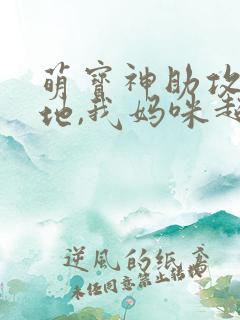 萌寶神助攻
地,我妈咪超
逆風的紙鳶
未经同意禁止转载